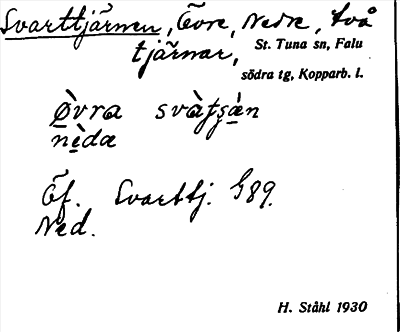 Svarttjärnen, Övre, Nedre, två
tjärnar, St. Tuna sn, Falu
södra tg, Kopparb. l.
Ø̀vra svàʈʂæ̀n
nèdæ
Öf. Svarttj. G89.
Ned.
H. Ståhl 1930